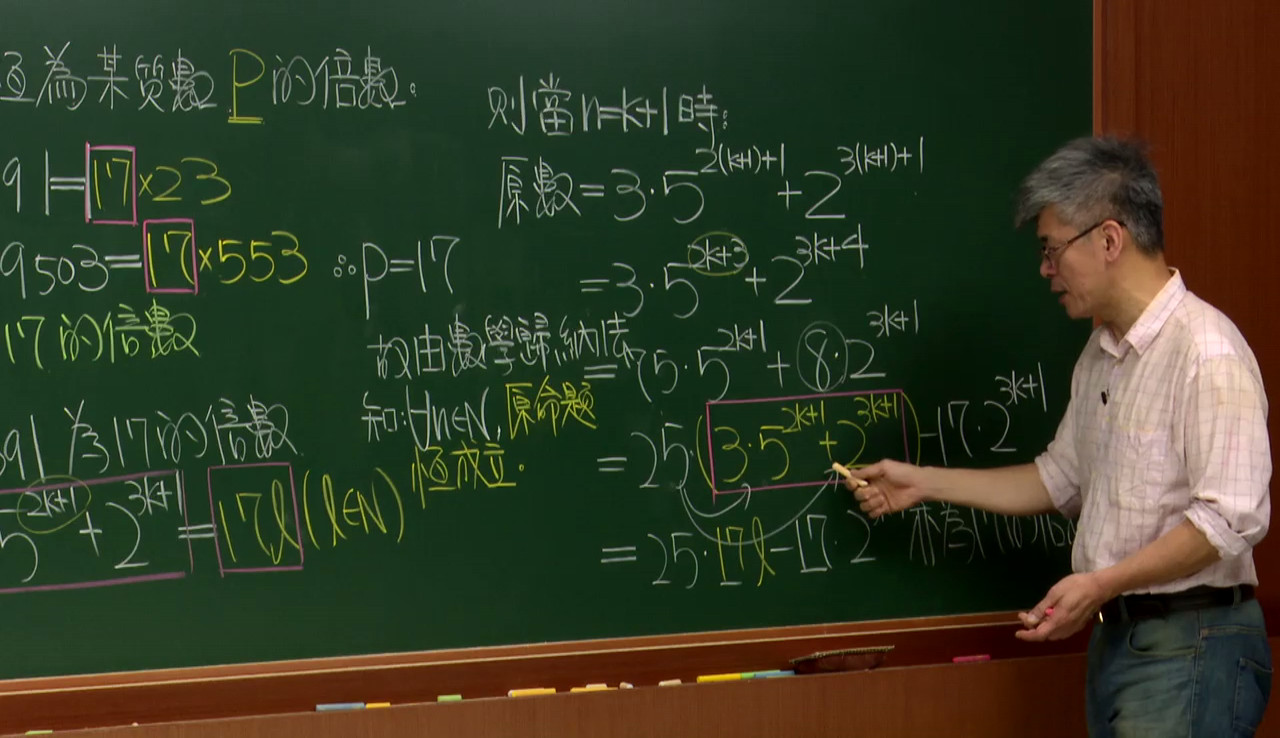 恆為某質數P的倍數:
91=17×23
9503=17×553 ∴p=17
17的倍數
391為17的倍數
5^{2k+1}+2^{3k+1}=17ℓ(ℓ∈N)
故由數學歸納法
知:∀n∈N,原命題
恆成立.
則當n=k+1時:
原數=3·5^{2(k+1)+1}+2^{3(k+1)+1}
=3·5^{2k+3}+2^{3k+4}
=75·5^{2k+1}+8·2^{3k+1}
=25(3·5^{2k+1}+2^{3k+1})-17·2^{3k+1}
=25·17ℓ-17·2 亦為17的倍